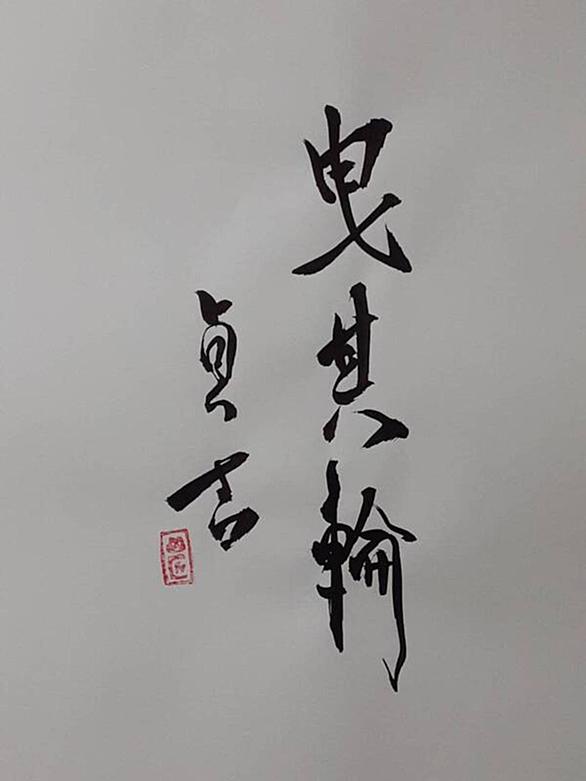 曳其輪
貞吉